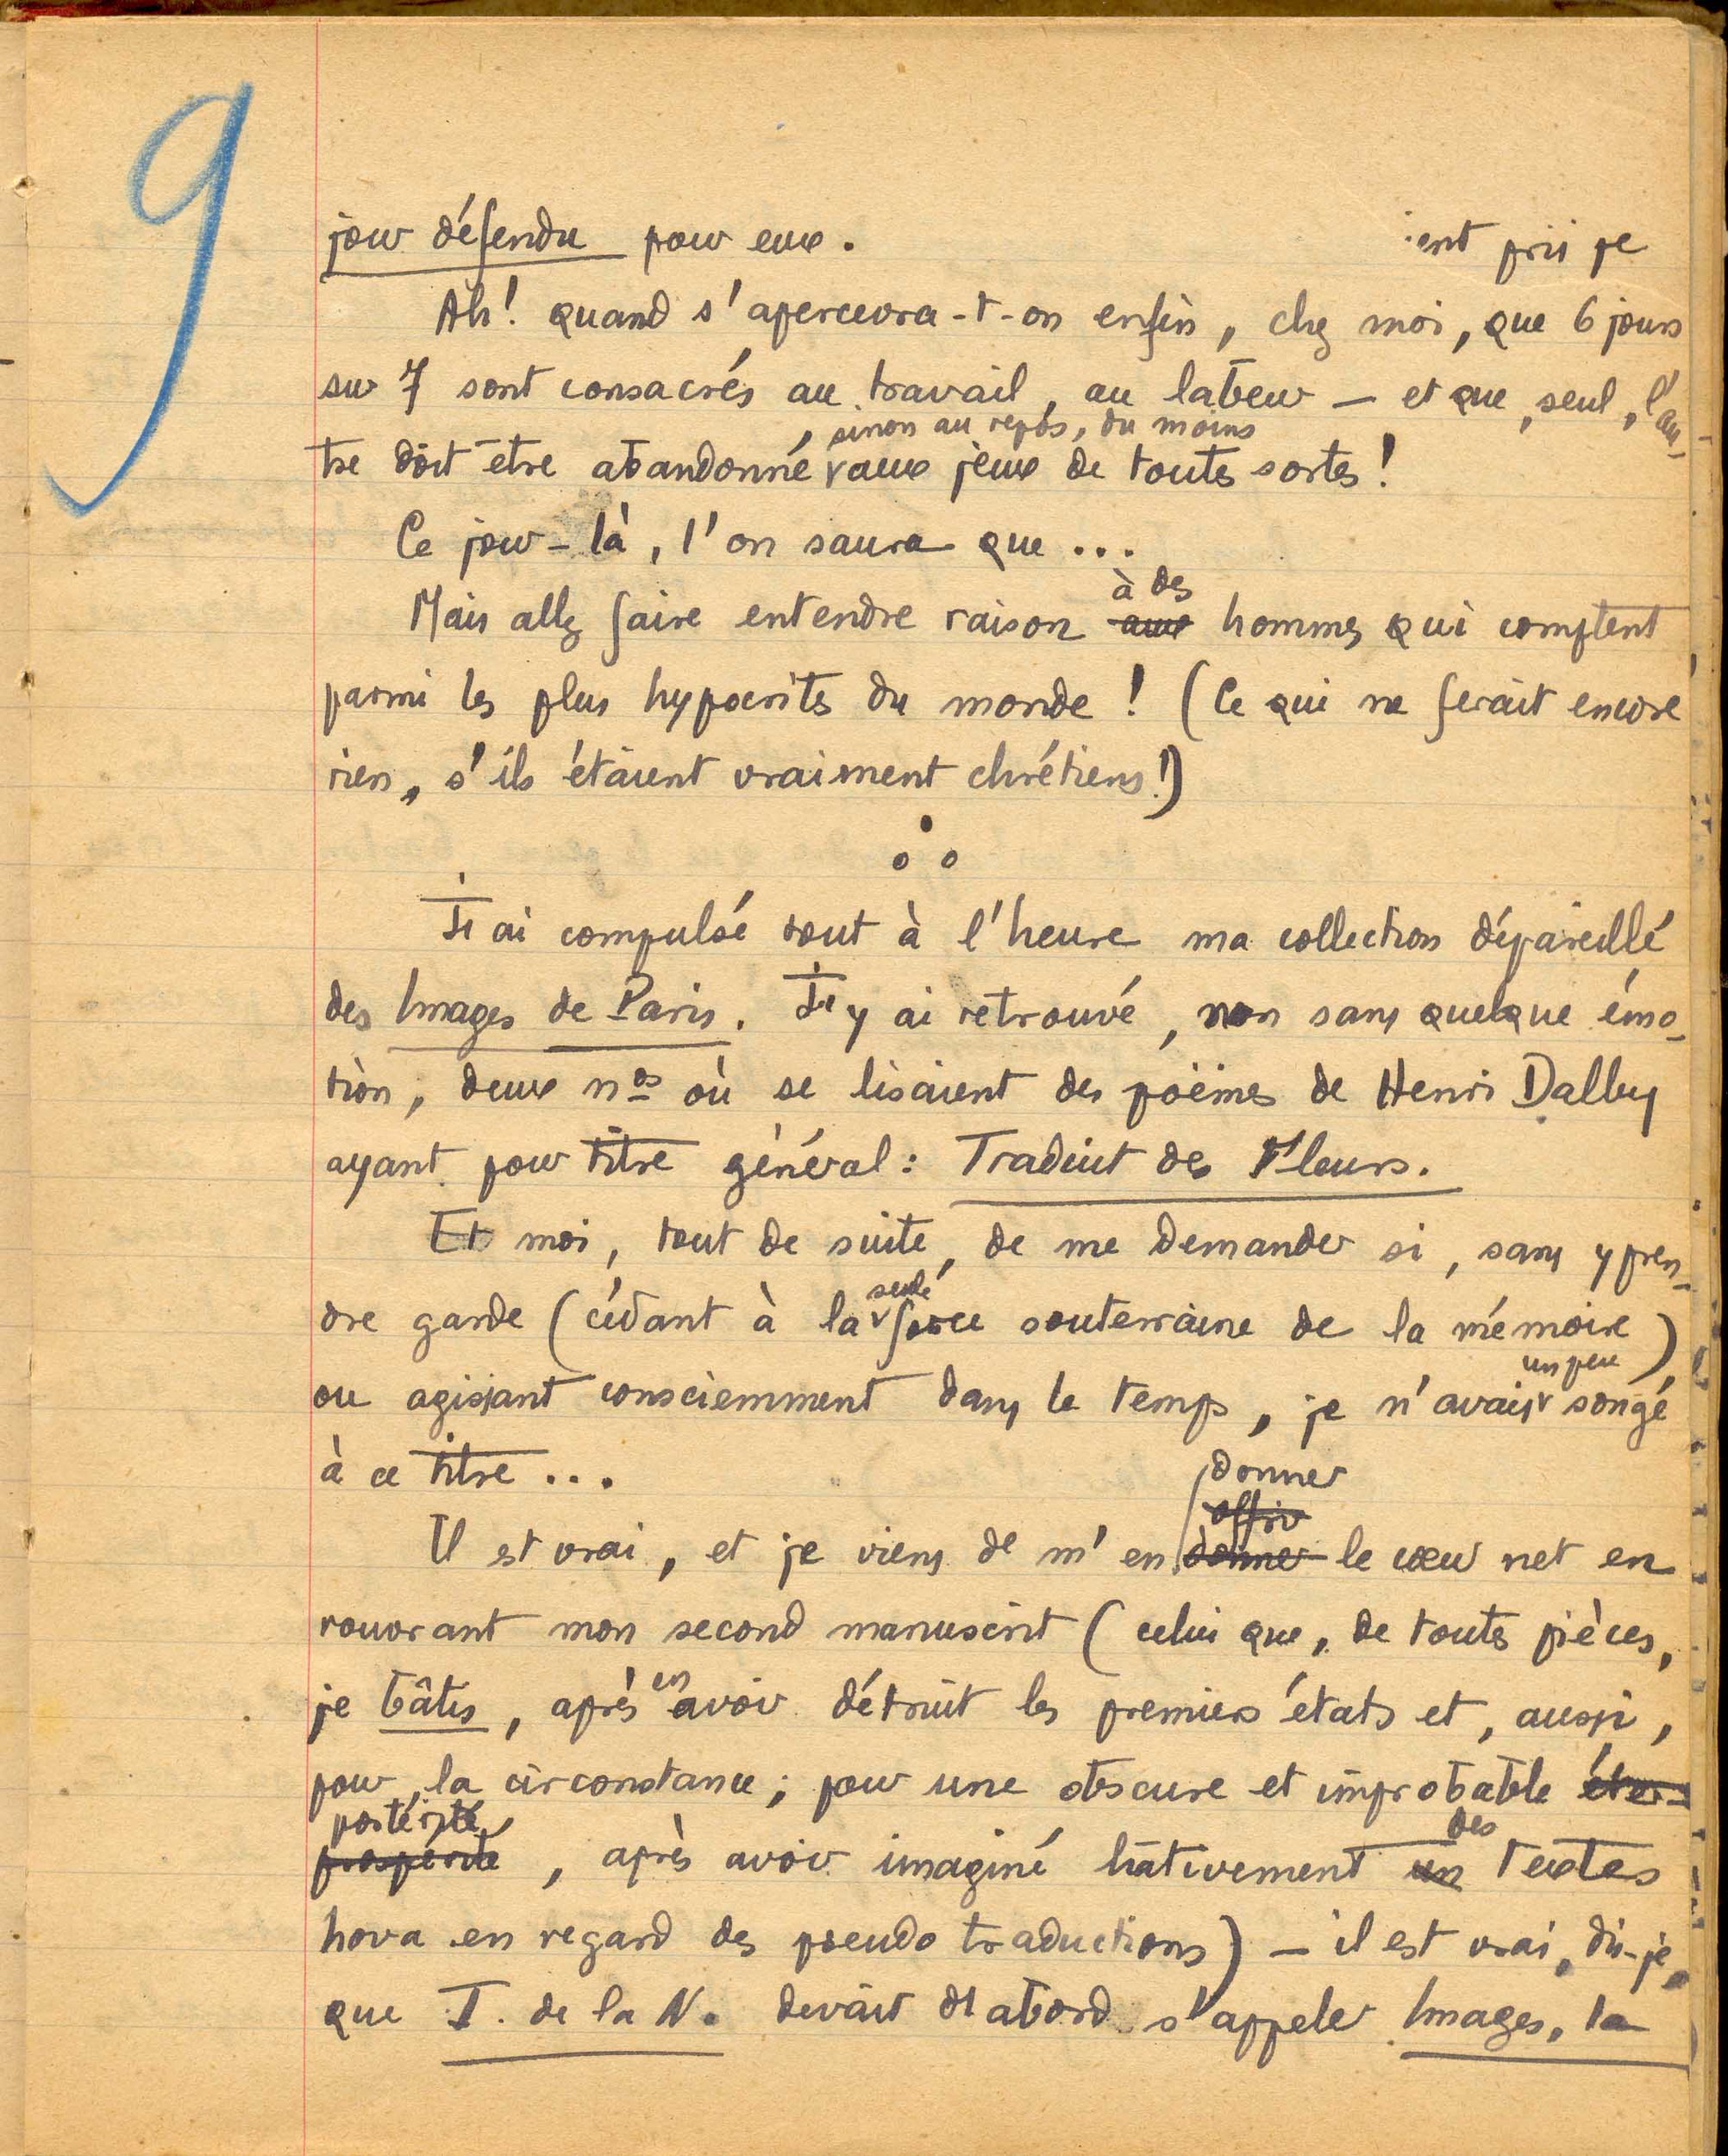 9
jour défendu pour eux. ient pris je
Ah! quand s'apercevra-t-on enfin, chez moi, que 6 jours
sur 7 sont consacrés au travail, au labeur — et que, seul, l'au-
, sinon au repos, du moins
tre doit être abandonné aux jeux de toutes sortes!
Ce jour-là, l'on saura que ...
à des
Mais allez faire entendre raison aux hommes qui comptent
parmi les plus hypocrites du monde! (Ce qui ne serait encore
rien, s'ils étaient vraiment chrétiens!)
J'ai compulsé tout à l'heure ma collection dépareillé
des Images de Paris. J'y ai retrouvé, non sans quelque émo-
tion, deux nos où se lisaient des poëmes de Henri Dalby
ayant pour titre général: Traduit des Fleurs.
Et moi, tout de suite, de me demander si, sans y pren-
seule
dre garde (cédant à la force souterraine de la mémoire)
un peu
ou agissant consciemment dans le temps, je n'avais songé
à ce titre ...
donner
offrir
Il est vrai, et je viens de m'en donner le cœur net en
rouvrant mon second manuscrit (celui que, de toutes pièces,
en
je bâtis, après avoir détruit les premiers états et, aussi,
pour la circonstance; pour une obscure et improbable éter-
postérité
prospérité, après avoir imaginé hâtivement un textes
des
hova en regard des pseudo traductions) — il est vrai, dis-je,
que T. de la N. devait d'abord s'appeler Images, la